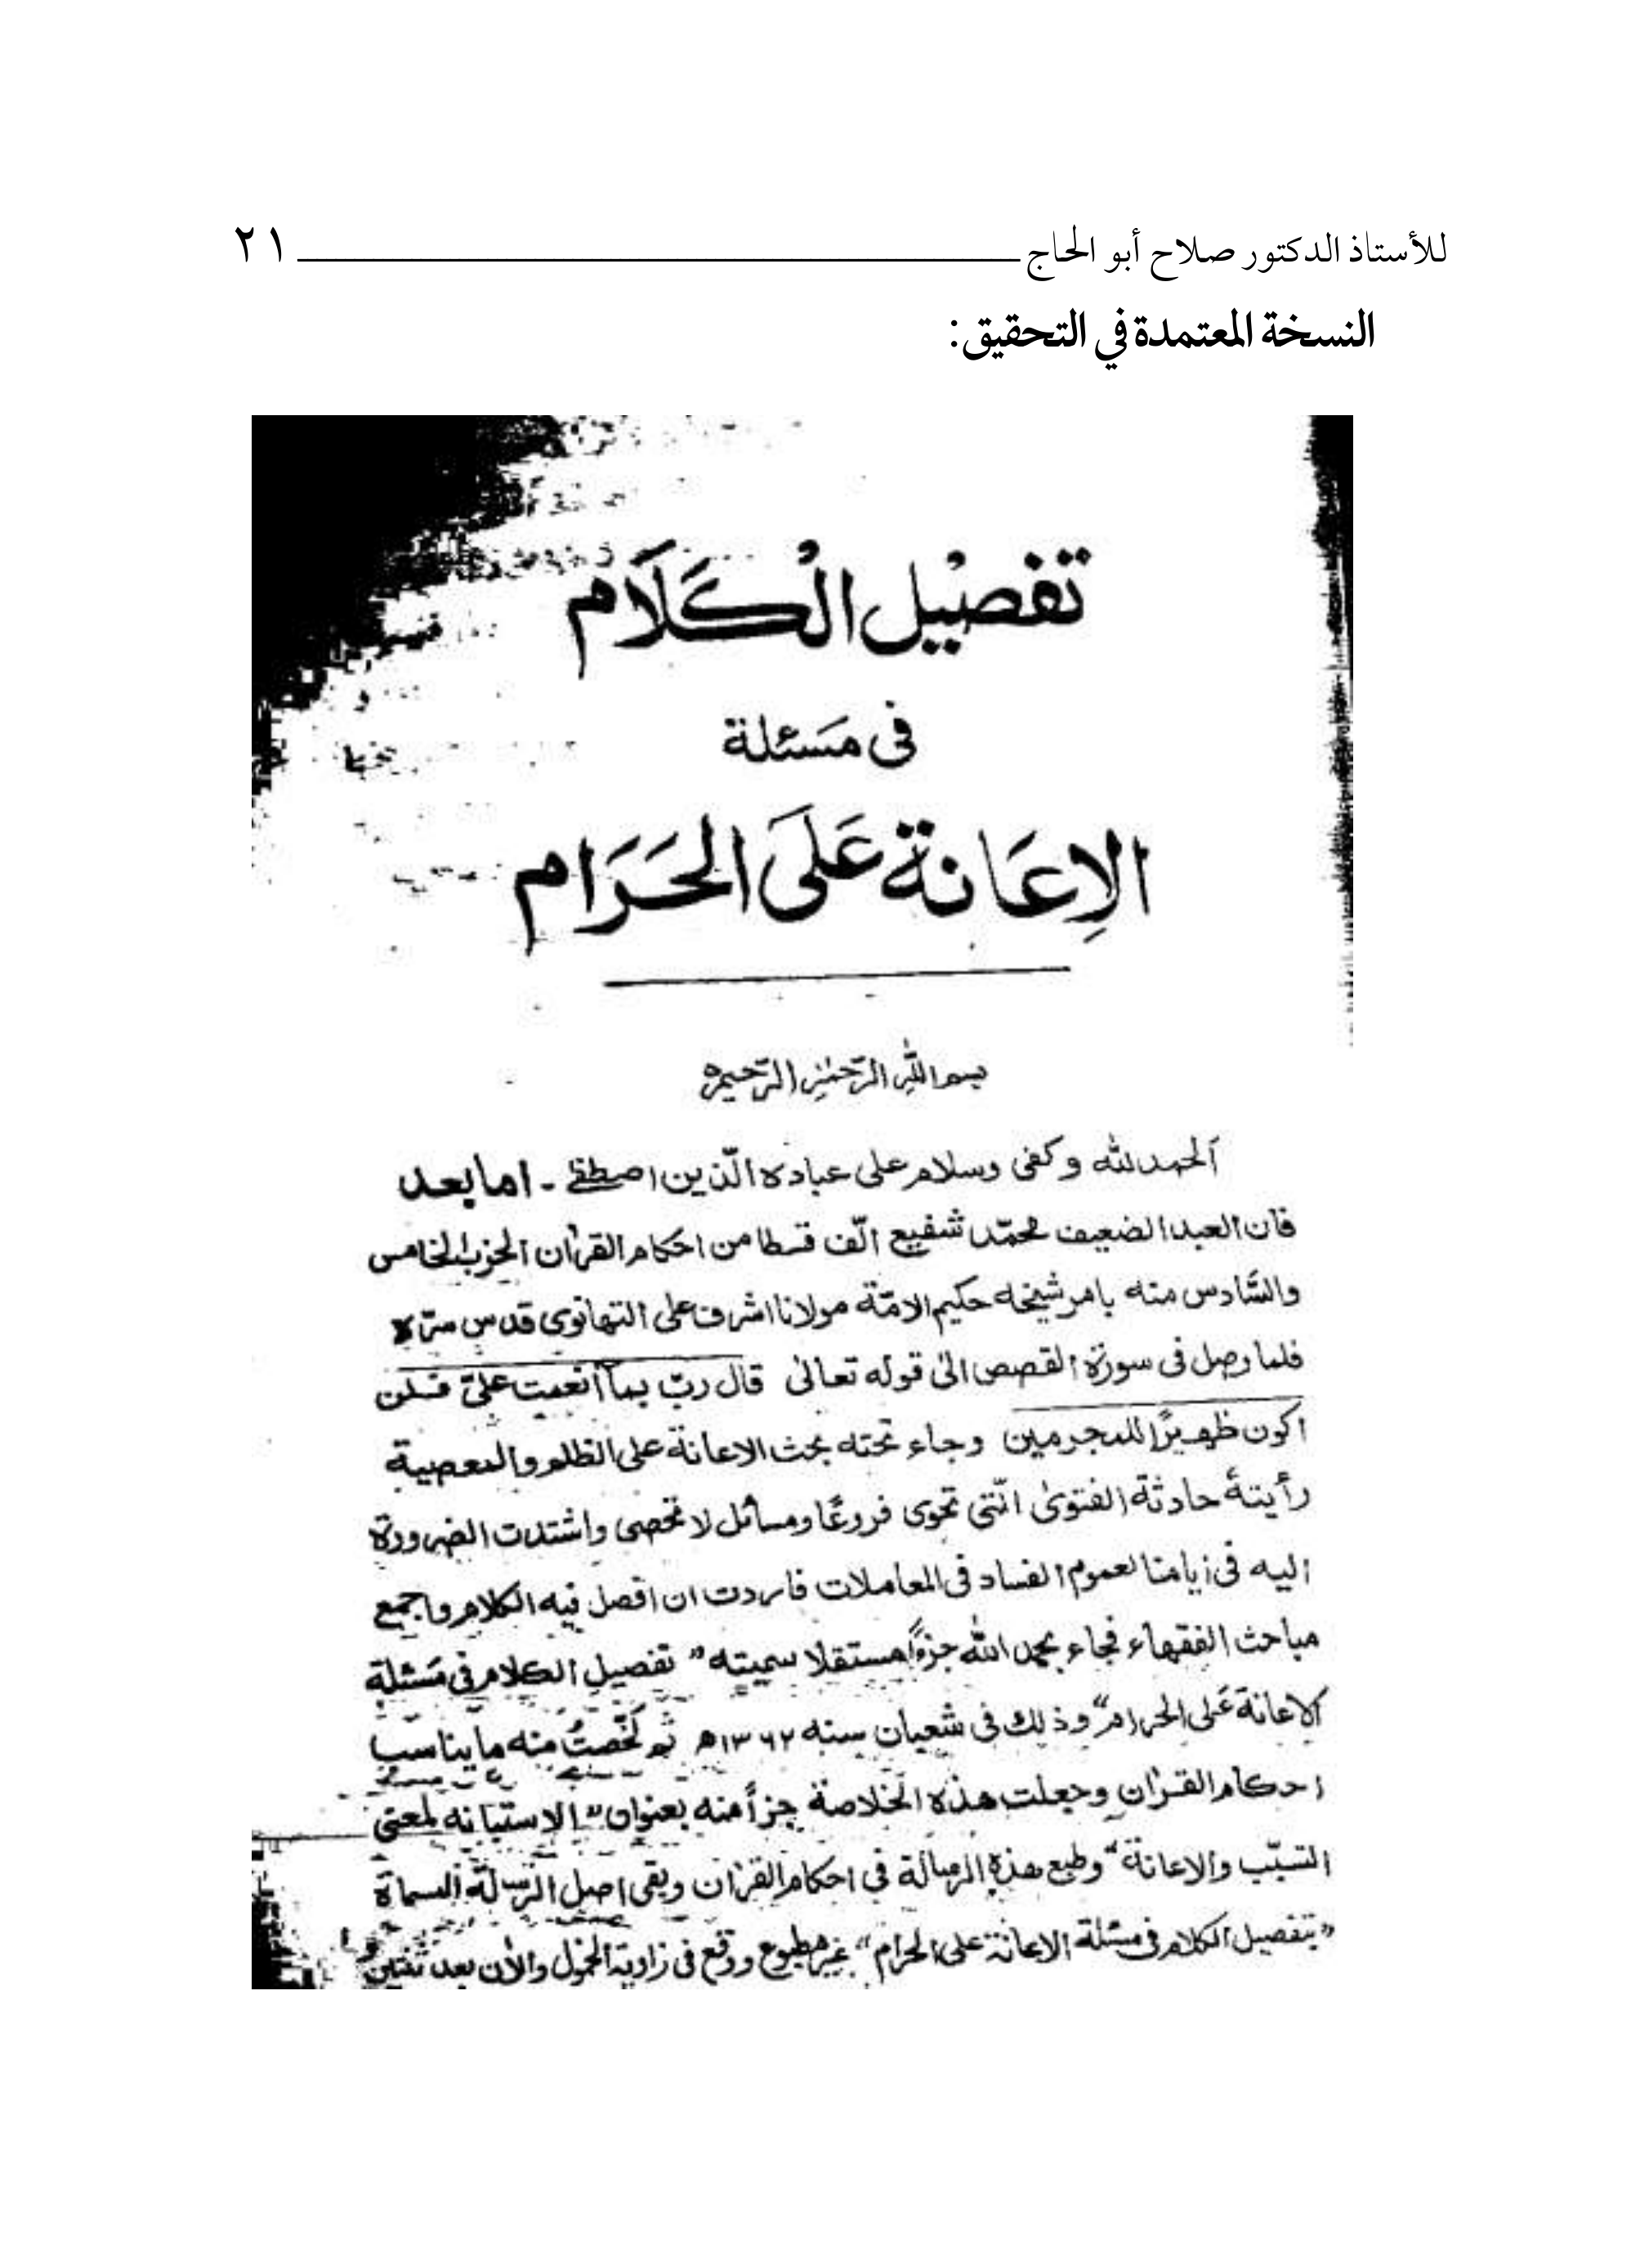 للأستاذ الدكتور صلاح أبو الحاج ٢١
النسخة المعتمدة في التحقيق:
تفصيل الكلام
فى مسئلة
الإعانة على الحرام
بسم الله الرحمن الرحيم
الحمد لله وكفى وسلام على عباده الذين اصطفى - اما بعد
فان العبد الضعيف محمد شفيع الف قسطا من احكام القران الحزب الخامس
والسادس منه بامر شيخه حكيم الامة مولانا اشرف على التهانوى قدس سره
فلما وصل فى سورة القصص الى قوله تعالى قال رب بما أنعمت علىّ فلن
اكون ظهيرًا للمجرمين وجاء تحته بحث الاعانة على الظلم والمعصية
رأيتهٗ حادثة الفتوىٰ الّتى تحوى فروعًا ومسائل لا تحصى واشتدت الضرورة
اليه فى زيامنا لعموم الفساد فى المعاملات فاردت ان افصل فيه الكلام واجمع
مباحث الفقهاء فجاء بحمد الله جزءًا مستقلا سميته "تفصيل الكلام فى مسئلة
الاعانة على الحرام" وذلك فى شعبان سنه ١٣٦٢ھ ثم لخّصتُ منه ما يناسب
احكام القران وجعلت هذه الخلاصة جزأ منه بعنوان "الاستبانه لمعنى
التسبّب والاعانة" وطبع هذه الرسالة فى احكام القران وبقى اصل الرسالة المسماة
"بتفصيل الكلام فى مسئلة الاعانة على الحرام" غير مطبوع ووقع فى زاوية الخمول والأن بعد